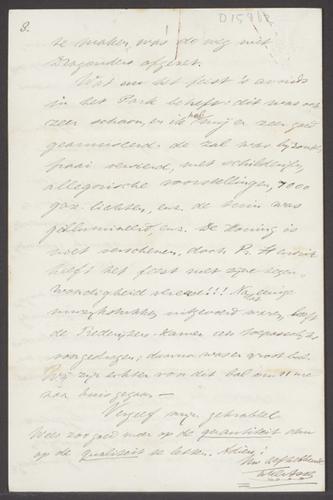 8.
D15912
te maken, was de weg met
Dragonders afgezet.
Wat nu het feest 's avonds
in het Park betreft: dit was ook
zeer schoon, en ik heb mij er zeer goed
geamuseerd. de zaal was bijzonder
fraai versierd, met schilderijen,
allegorische voorstellingen, 7000
gaz lichten, enz. De tuin was
geillumineerd, enz. De Koning is
niet verschenen, doch Pr. Hendrik
heeft het feest met zijne tegen-
woordigheid vereerd!!! Na eenige
muzijkstukken uitgevoerd waren, heeft
de Rederijkers Kamer iets toepasselijks
voorgedragen, daarna was er groot bal.
Wij zijn echter voor dit bal om 11 ure
naar huis gegaan —
Vergeef mijn gekrabbel
Wees zoo goed meer op de quantiteit dan
op de qualiteit te letten. Adieu!